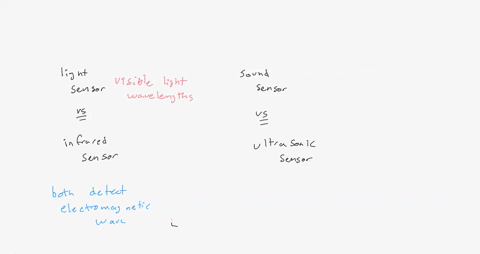 light
sensor
visible light
wavelengths
vs
infrared
sensor
both detect
electromagnetic
wave
sound
sensor
vs
ultrasonic
sensor